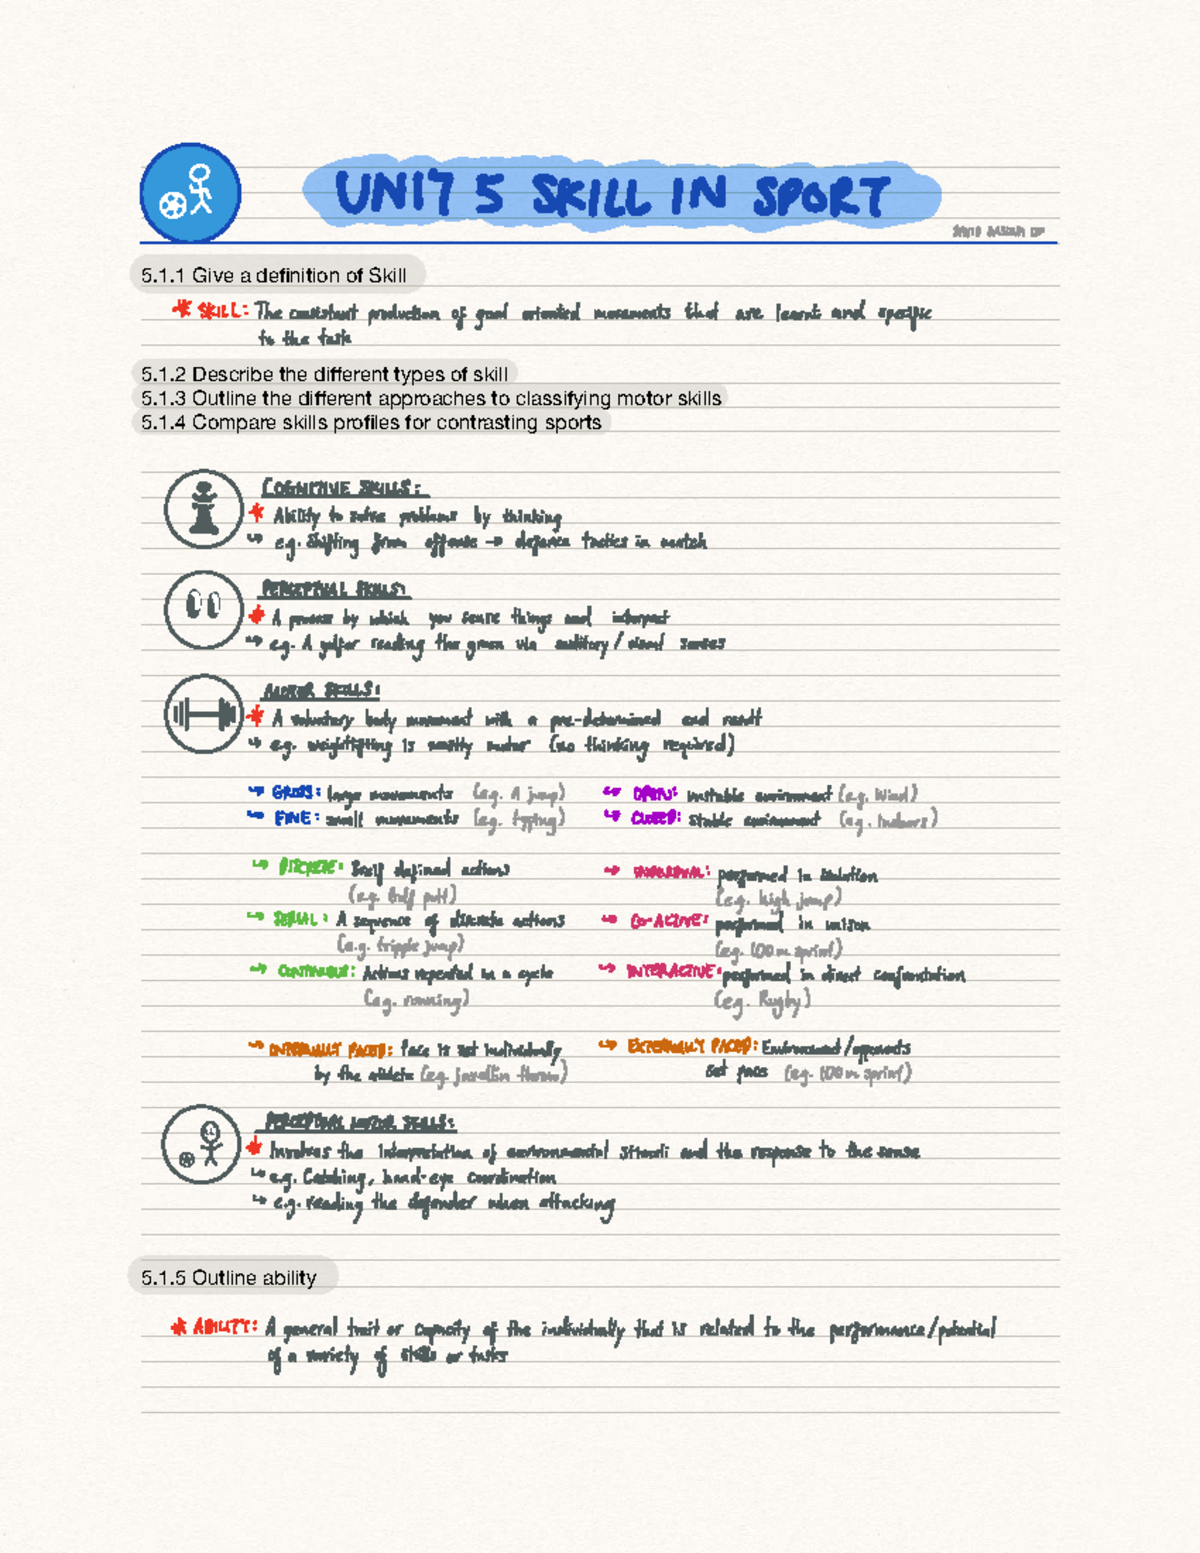 UNIT 5 SKILL IN SPORT
5.1.1 Give a definition of Skill
* SKILL: The consistent production of goal oriented movements that are learnt and specific
to the task
5.1.2 Describe the different types of skill
5.1.3 Outline the different approaches to classifying motor skills
5.1.4 Compare skills profiles for contrasting sports
COGNITIVE SKILLS:
* Ability to solve problems by thinking
↪ e.g. Shifting from offense → defence tactics in match
PERCEPTUAL SKILLS:
* A process by which you sense things and interpret
↪ e.g. A golfer reading the green via auditory / visual senses
MOTOR SKILLS:
* A voluntary body movement with a pre-determined end result
↪ e.g. weightlifting is mostly motor (no thinking required)
↪ GROSS: large movements (e.g. A jump) ↪ OPEN: unstable environment (e.g. Wind)
↪ FINE: small movements (e.g. typing) ↪ CLOSED: stable environment (e.g. Indoors)
↪ DISCRETE: Brief defined actions ↪ INDIVIDUAL: performed in isolation
(e.g. Golf putt) (e.g. high jump)
↪ SERIAL: A sequence of discrete actions ↪ CO-ACTIVE: performed in unison
(e.g. tripple jump) (e.g. 100m sprint)
↪ CONTINUOUS: Actions repeated in a cycle ↪ INTERACTIVE: performed in direct confrontation
(e.g. running) (e.g. Rugby)
↪ INTERNALLY PACED: Pace is set individually ↪ EXTERNALLY PACED: Environment/opponents
by the athlete (e.g. javellin throw) set pace (e.g. 100m sprint)
PERCEPTUAL MOTOR SKILLS:
* Involves the interpretation of environmental stimuli and the response to the sense
↪ e.g. Catching, hand-eye coordination
↪ e.g. reading the defender when attacking
5.1.5 Outline ability
* ABILITY: A general trait or capacity of the individually that is related to the performance/potential
of a variety of skills or tasks